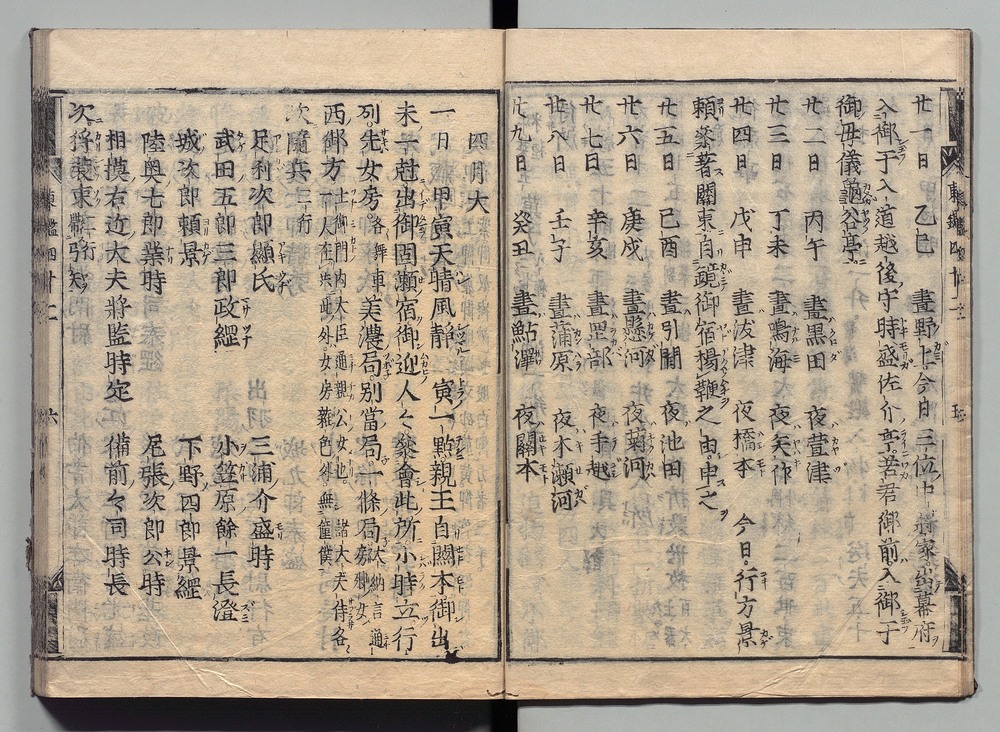 廿一日 乙巳 晝野上 今日三位中將家出幕府
入御于入道越後守時盛佐介亭若君御前入御于
御母儀龜谷亭
廿二日 丙午 晝黒田 夜萱津
廿三日 丁未 晝鳴海 夜矢作
廿四日 戊申 晝渡津 夜橋本 今日行方景
頼參著關東自鏡御宿揚鞭之由申之
廿五日 己酉 晝引間 夜池田
廿六日 庚戌 晝懸河 夜菊河
廿七日 辛亥 晝罡部 夜手越
廿八日 壬子 晝蒲原 夜木瀬河
廿九日 癸丑 晝鮎澤 夜關本
四月大
一日 甲寅天晴風靜 寅一點親王自關本御出
未一尅出御固瀬宿御迎人々參會此所小時立行
列先女房 各舞車美濃局別當局一條局
西御方 土御門内大臣通親公女也 諸大夫侍各
次隨兵 二行
足利次郎顯氏 三浦介盛時
武田五郎三郎政經 小笠原餘一長澄
城次郎頼景 下野四郎景經
陸奥七郎業時 尾張次郎公時
相摸右近大夫將監時定 備前々司時長
次狩裝束
東鑑四十二 六